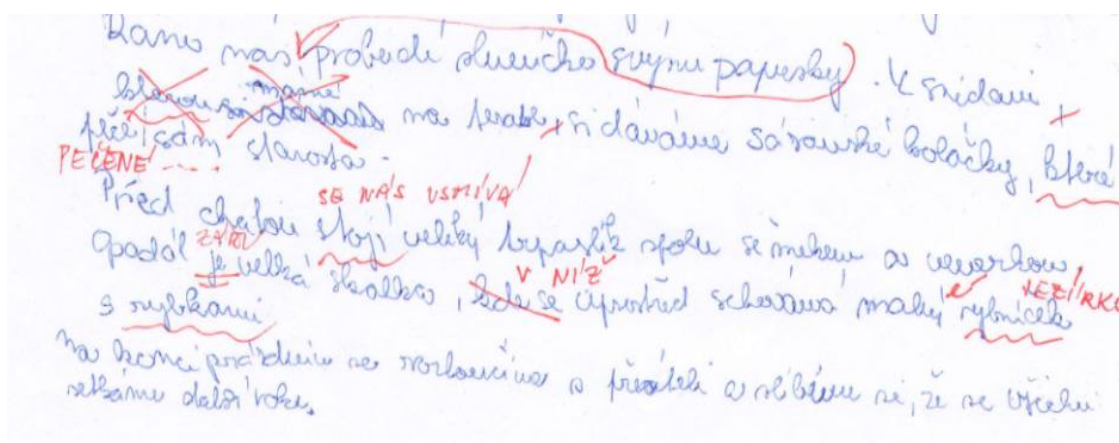 Ráno nás probudí sluníčko svými paprsky. K snídani
kterou si máme dáváme na terase, si dáváme sázavské koláčky, které
peče sám starosta.
PEČENÉ ....
SE NÁS USMÍVÁ
Před chatou stojí veliký trpaslík spolu se psem a veverkou,
ZARU
Opodál je velká skalka, kde se uprostřed schovává malý rybníček
V NÍŽ
JEZÍRKO
s rybkami
Na konci prázdnin se rozloučíme s přáteli a slíbíme si, že se všichni
setkáme další roku.